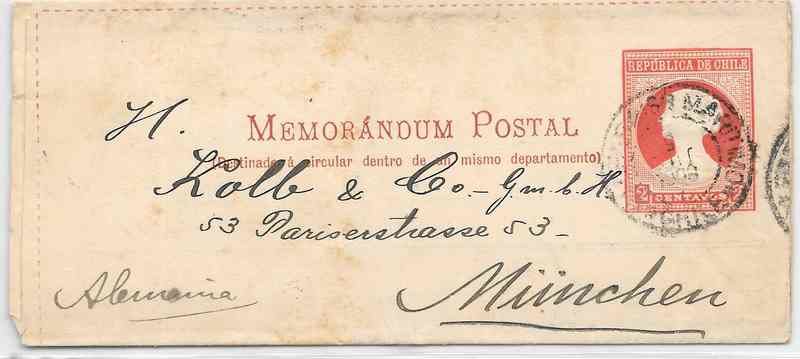 REPÚBLICA DE CHILE
H.
MEMORÁNDUM POSTAL
(Destinado á circular dentro de un mismo departamento)
Kolb & Co. - G.m.b.H.
53 Pariserstrasse 53 -
2 CENTAVOS
Alemania
München